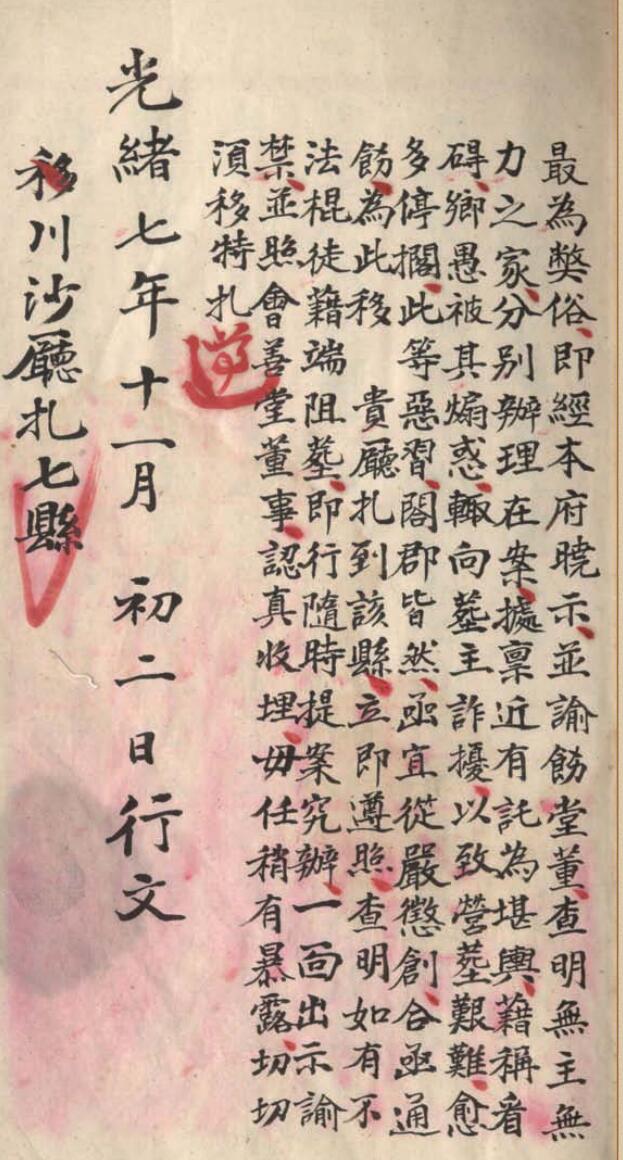 最為獘俗即經本府曉示並諭飭堂董查明無主無
力之家分別辦理在案據稟近有託為堪輿藉稱看
碍鄉愚被其煽惑輙向塟主詐擾以致營塟艱難愈
多停擱此等惡習閤郡皆然亟宜從嚴懲創合亟通
飭為此移 貴廳扎到該縣立即遵照查明如有不
法棍徒藉端阻塟即行隨時提案究辦一面出示諭
禁並照會善堂董事認真收埋毋任稍有暴露切切
湏移特扎
遵
光緒七年十一月 初二日行文
移川沙廳扎七縣